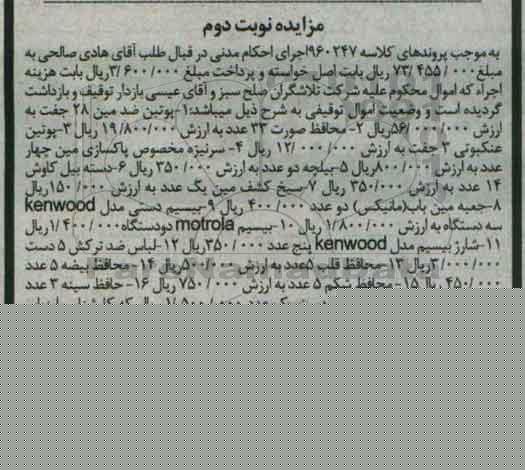 مزایده نوبت دوم
به موجب پروندهای کلاسه ۹۶۰۲۴۷اجرای احکام مدنی در قبال طلب آقای هادی صالحی به
مبلغ ۷۳/۴۵۵/۰۰۰ ریال بابت اصل خواسته و پرداخت مبلغ ۳/۶۰۰/۰۰۰ریال بابت هزینه
اجراء که اموال محکوم علیه شرکت تلاشگران صلح سبز و آقای عیسی بازدار توقیف و بازداشت
گردیده است و وضعیت اموال توقیفی به شرح ذیل میباشد:۱-پوتین ضد مین ۲۸ جفت به
ارزش ۵۶/۰۰۰/۰۰۰ریال ۲- محافظ صورت ۳۳ عدد به ارزش ۱۹/۸۰۰/۰۰۰ ریال ۳-پوتین
عنکبوتی ۳ جفت به ارزش ۱۲/۰۰۰/۰۰۰ ریال ۴- سرنیزه مخصوص پاکسازی مین چهار
عدد به ارزش ۸۰۰/۰۰۰ریال ۵-بیلچه دو عدد به ارزش ۳۵۰/۰۰۰ ریال ۶-دسته بیل کاوش
۱۴ عدد به ارزش ۳۵۰/۰۰۰ ریال ۷-سیخ کشف مین یک عدد به ارزش ۱۵۰/۰۰۰ریال
۸-جعبه مین یاب(مانیکس) دو عدد ۴۰۰/۰۰۰ ریال ۹-بیسیم دستی مدل kenwood
سه دستگاه به ارزش ۱/۸۰۰/۰۰۰ ریال ۱۰-بیسیم motrola دودستگاه ۱/۴۰۰/۰۰۰ریال
۱۱-شارژ بیسیم مدل kenwood پنج عدد ۳۵۰/۰۰۰ریال ۱۲-لباس ضد ترکش ۵ دست
۳/۰۰۰/۰۰۰ریال ۱۳-محافظ قلب ۵عدد به ارزش ۵۰۰/۰۰۰ریال ۱۴- محافظ بیضه ۵ عدد
۴۵۰/۰۰۰ ریال ۱۵-محافظ شکم ۵ عدد به ارزش ۷۵۰/۰۰۰ ریال ۱۶- حافظ سینه ۳ عدد